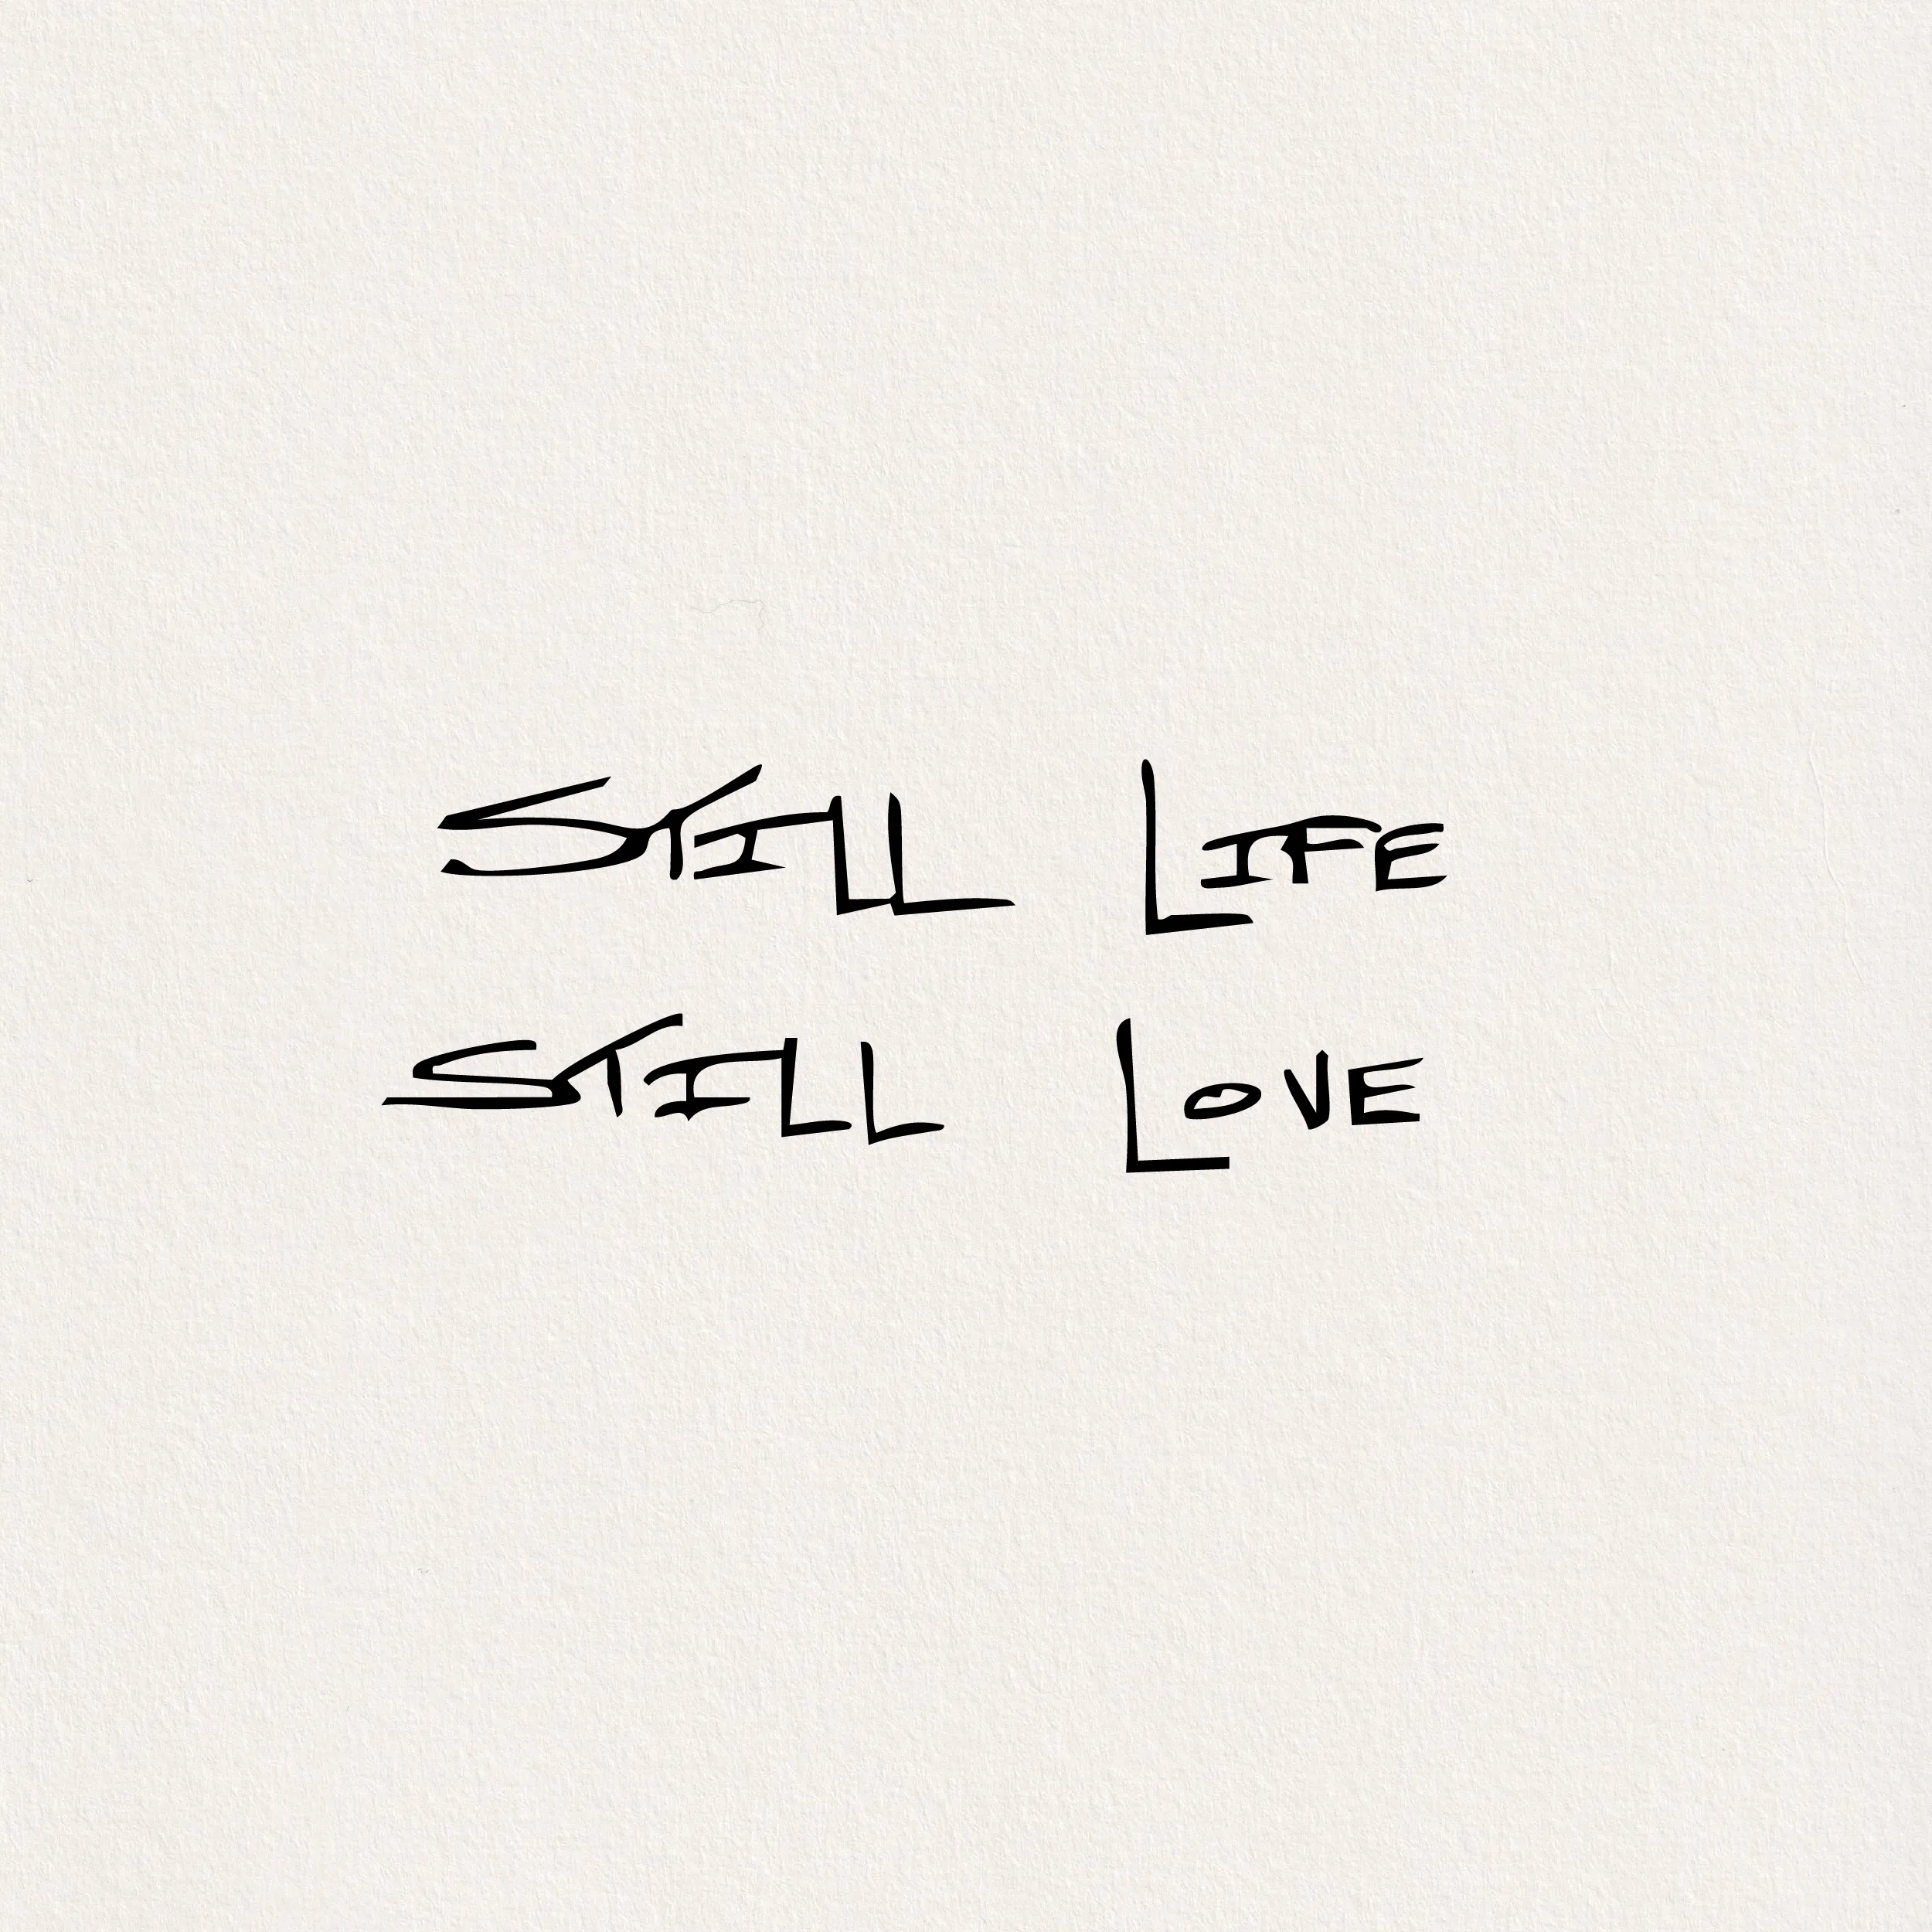 STILL LIFE
STILL LOVE